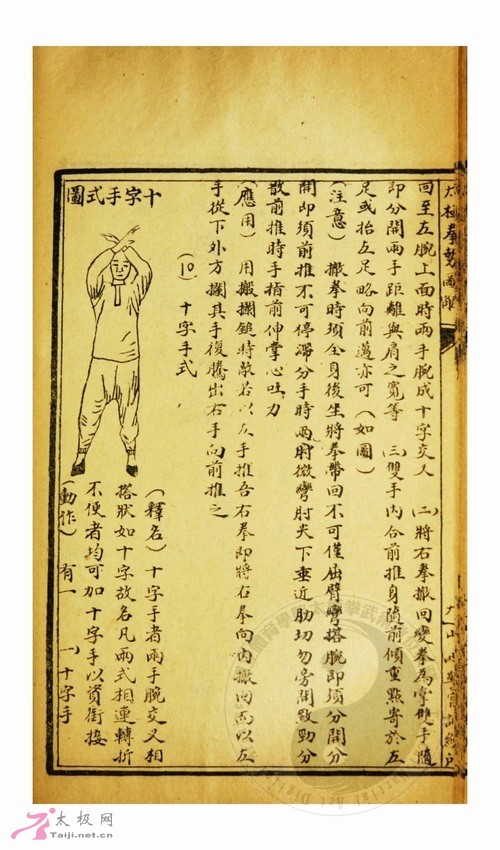 回至左腕上面時兩手腕成十字交人 (二)將右拳撤回變拳為掌雙手隨
即分開兩手距離與肩之寬等 (三)雙手内合前推身隨前傾重點寄於左
足或抬左足略向前邁亦可(如圖)
(注意) 撤拳時須全身後坐將拳帶回不可僅屈臂彎搭腕即須分開分
開即須前推不可停滯分手時兩肘微彎肘尖下垂近肋切勿旁開致勁分
散前推時手指前伸掌心吐力
(應用) 用搬攔鎚時敵若以左手推吾右拳即將右拳向内撤回而以左
手從下外方攔其手復騰出右手向前推之
(10) 十字手式
十字手式圖
(釋名) 十字手者兩手腕交叉相
搭狀如十字故名凡兩式相連轉折
不便者均可加十字手以資銜接
(動作) 有一 一)十字手
太极网
Taiji.net.cn